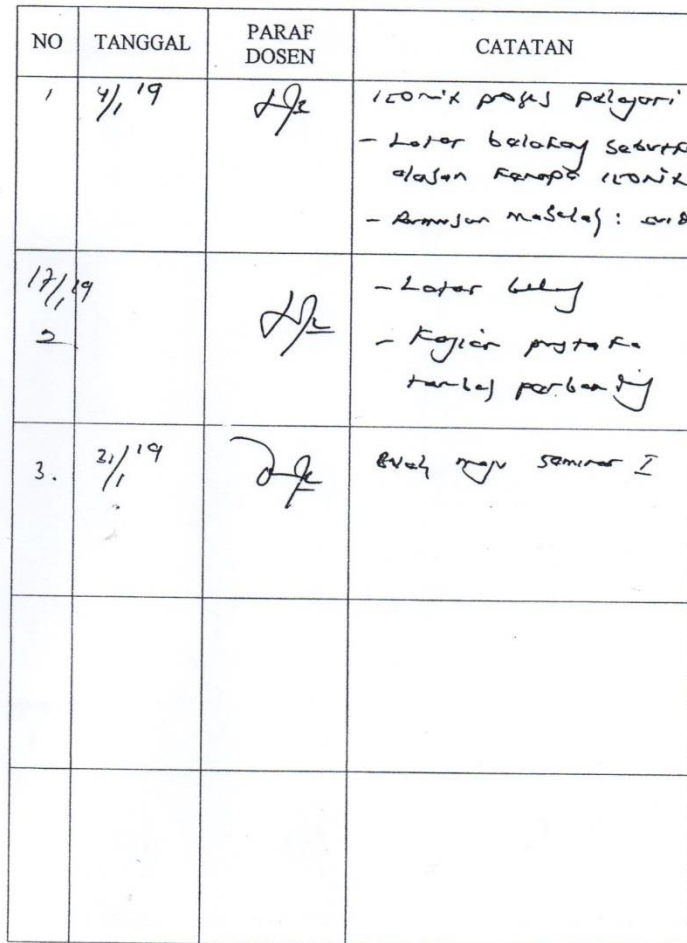 NO TANGGAL PARAF DOSEN CATATAN
1 4/1 19 Iconix proses pelajari
- Latar belakang
alasan kenapa Iconix
- Rumusan masalah :
17/1 19 - Latar belakang
2 - Kajian pustaka
tambah
3. 31/1 19 maju seminar I